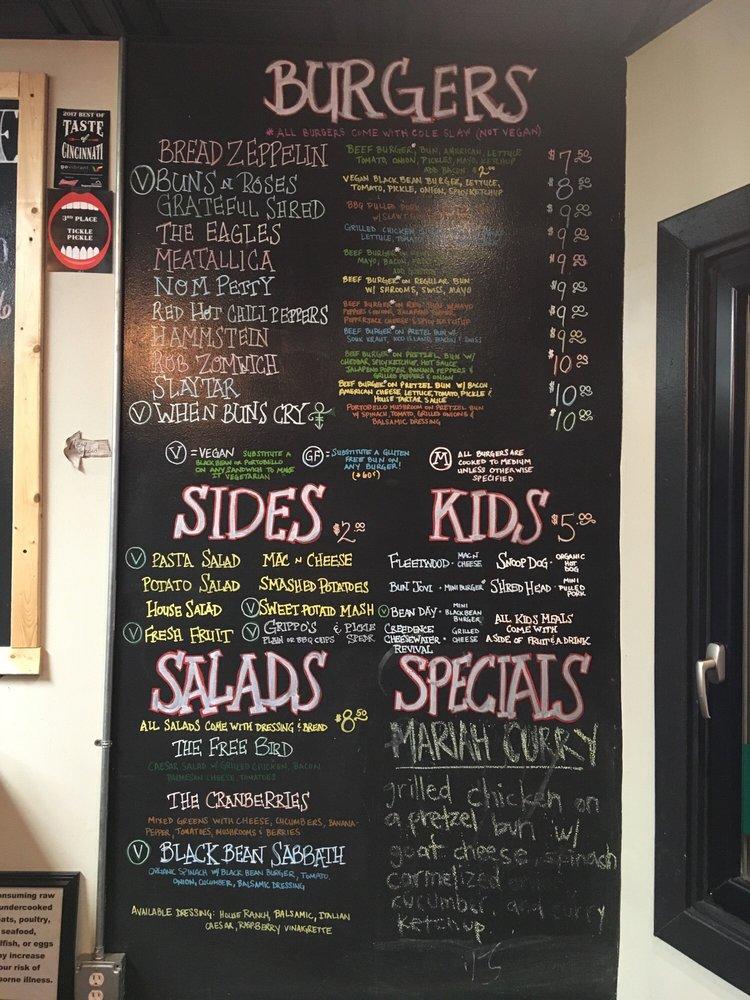 BURGERS
*ALL BURGERS COME WITH COLE SLAW (NOT VEGAN)
BREAD ZEPPELIN BEEF BURGER*, BUN, AMERICAN, LETTUCE TOMATO, ONION, PICKLES, MAYO, KETCHUP ADD BACON $2.00 $7.50
V BUNS N ROSES VEGAN BLACK BEAN BURGER, LETTUCE, TOMATO, PICKLE, ONION, SPICY KETCHUP $8.50
GRATEFUL SHRED BBQ PULLED PORK W/ SLAW $9.00
THE EAGLES GRILLED CHICKEN LETTUCE, $9.00
MEATALLICA BEEF BURGER* ON MAYO, BACON, $9.00
NOM PETTY BEEF BURGER* ON REGULAR BUN W/ SHROOMS, SWISS, MAYO $9.00
RED HOT CHILI PEPPERS BEEF BURGER* ON REG. BUN W/ MAYO PEPPERS & ONIONS, JALAPENO POPPER, PEPPERJACK CHEESE & SPICY KETCHUP $9.00
HAMMSTEIN BEEF BURGER* ON PRETZEL BUN W/ SOUR KRAUT, 1000 ISLAND, BACON & SWISS $9.00
ROB ZOMWICH BEEF BURGER* ON PRETZEL BUN W/ CHEDDAR, SPICY KETCHUP, HOT SAUCE JALAPENO POPPER, BANANA PEPPERS & GRILLED PEPPERS & ONION $10.00
SLAYTAR BEEF BURGER* ON PRETZEL BUN W/ BACON AMERICAN CHEESE, LETTUCE, TOMATO, PICKLE & HOUSE TARTAR SAUCE $10.00
V WHEN BUNS CRY PORTOBELLO MUSHROOM ON PRETZEL BUN W/ SPINACH, TOMATO, GRILLED ONIONS & BALSAMIC DRESSING $10.00
V = VEGAN SUBSTITUTE A BLACK BEAN OR PORTOBELLO ON ANY SANDWICH TO MAKE IT VEGETARIAN
GF = SUBSTITUTE A GLUTEN FREE BUN ON ANY BURGER! (+60¢)
M ALL BURGERS ARE COOKED TO MEDIUM UNLESS OTHERWISE SPECIFIED
SIDES $2.00
V PASTA SALAD MAC N CHEESE
POTATO SALAD SMASHED POTATOES
HOUSE SALAD V SWEET POTATO MASH
V FRESH FRUIT V GRIPPO'S PLAIN OR BBQ CHIPS & PICKLE SPEAR
KIDS $5.00
FLEETWOOD - MAC N CHEESE SNOOP DOG - ORGANIC HOT DOG
BUN JOVI - MINI BURGER* SHRED HEAD - MINI PULLED PORK
V BEAN DAY - MINI BLACK BEAN BURGER
CREEDENCE CHEESEWATER REVIVAL - GRILLED CHEESE
ALL KIDS MEALS COME WITH A SIDE OF FRUIT & A DRINK
SALADS
ALL SALADS COME WITH DRESSING & BREAD $8.50
THE FREE BIRD
CAESAR SALAD W/ GRILLED CHICKEN, BACON
PARMESAN CHEESE, TOMATOES
THE CRANBERRIES
MIXED GREENS WITH CHEESE, CUCUMBERS, BANANA-
PEPPER, TOMATOES, MUSHROOMS & BERRIES
V BLACK BEAN SABBATH
ORGANIC SPINACH W/ BLACK BEAN BURGER, TOMATO,
ONION, CUCUMBER, BALSAMIC DRESSING
AVAILABLE DRESSING: HOUSE RANCH, BALSAMIC, ITALIAN
CAESAR, RASPBERRY VINAIGRETTE
SPECIALS
MARIAH CURRY
grilled chicken on
a pretzel bun w/
goat cheese, spinach
carmelized
cucumber, and curry
ketchup.
2017 BEST OF
TASTE
of
CINCINNATI
govibrant
3RD PLACE
TICKLE
PICKLE
onsuming raw
undercooked
eats, poultry,
seafood,
llfish, or eggs
ay increase
our risk of
borne illness.